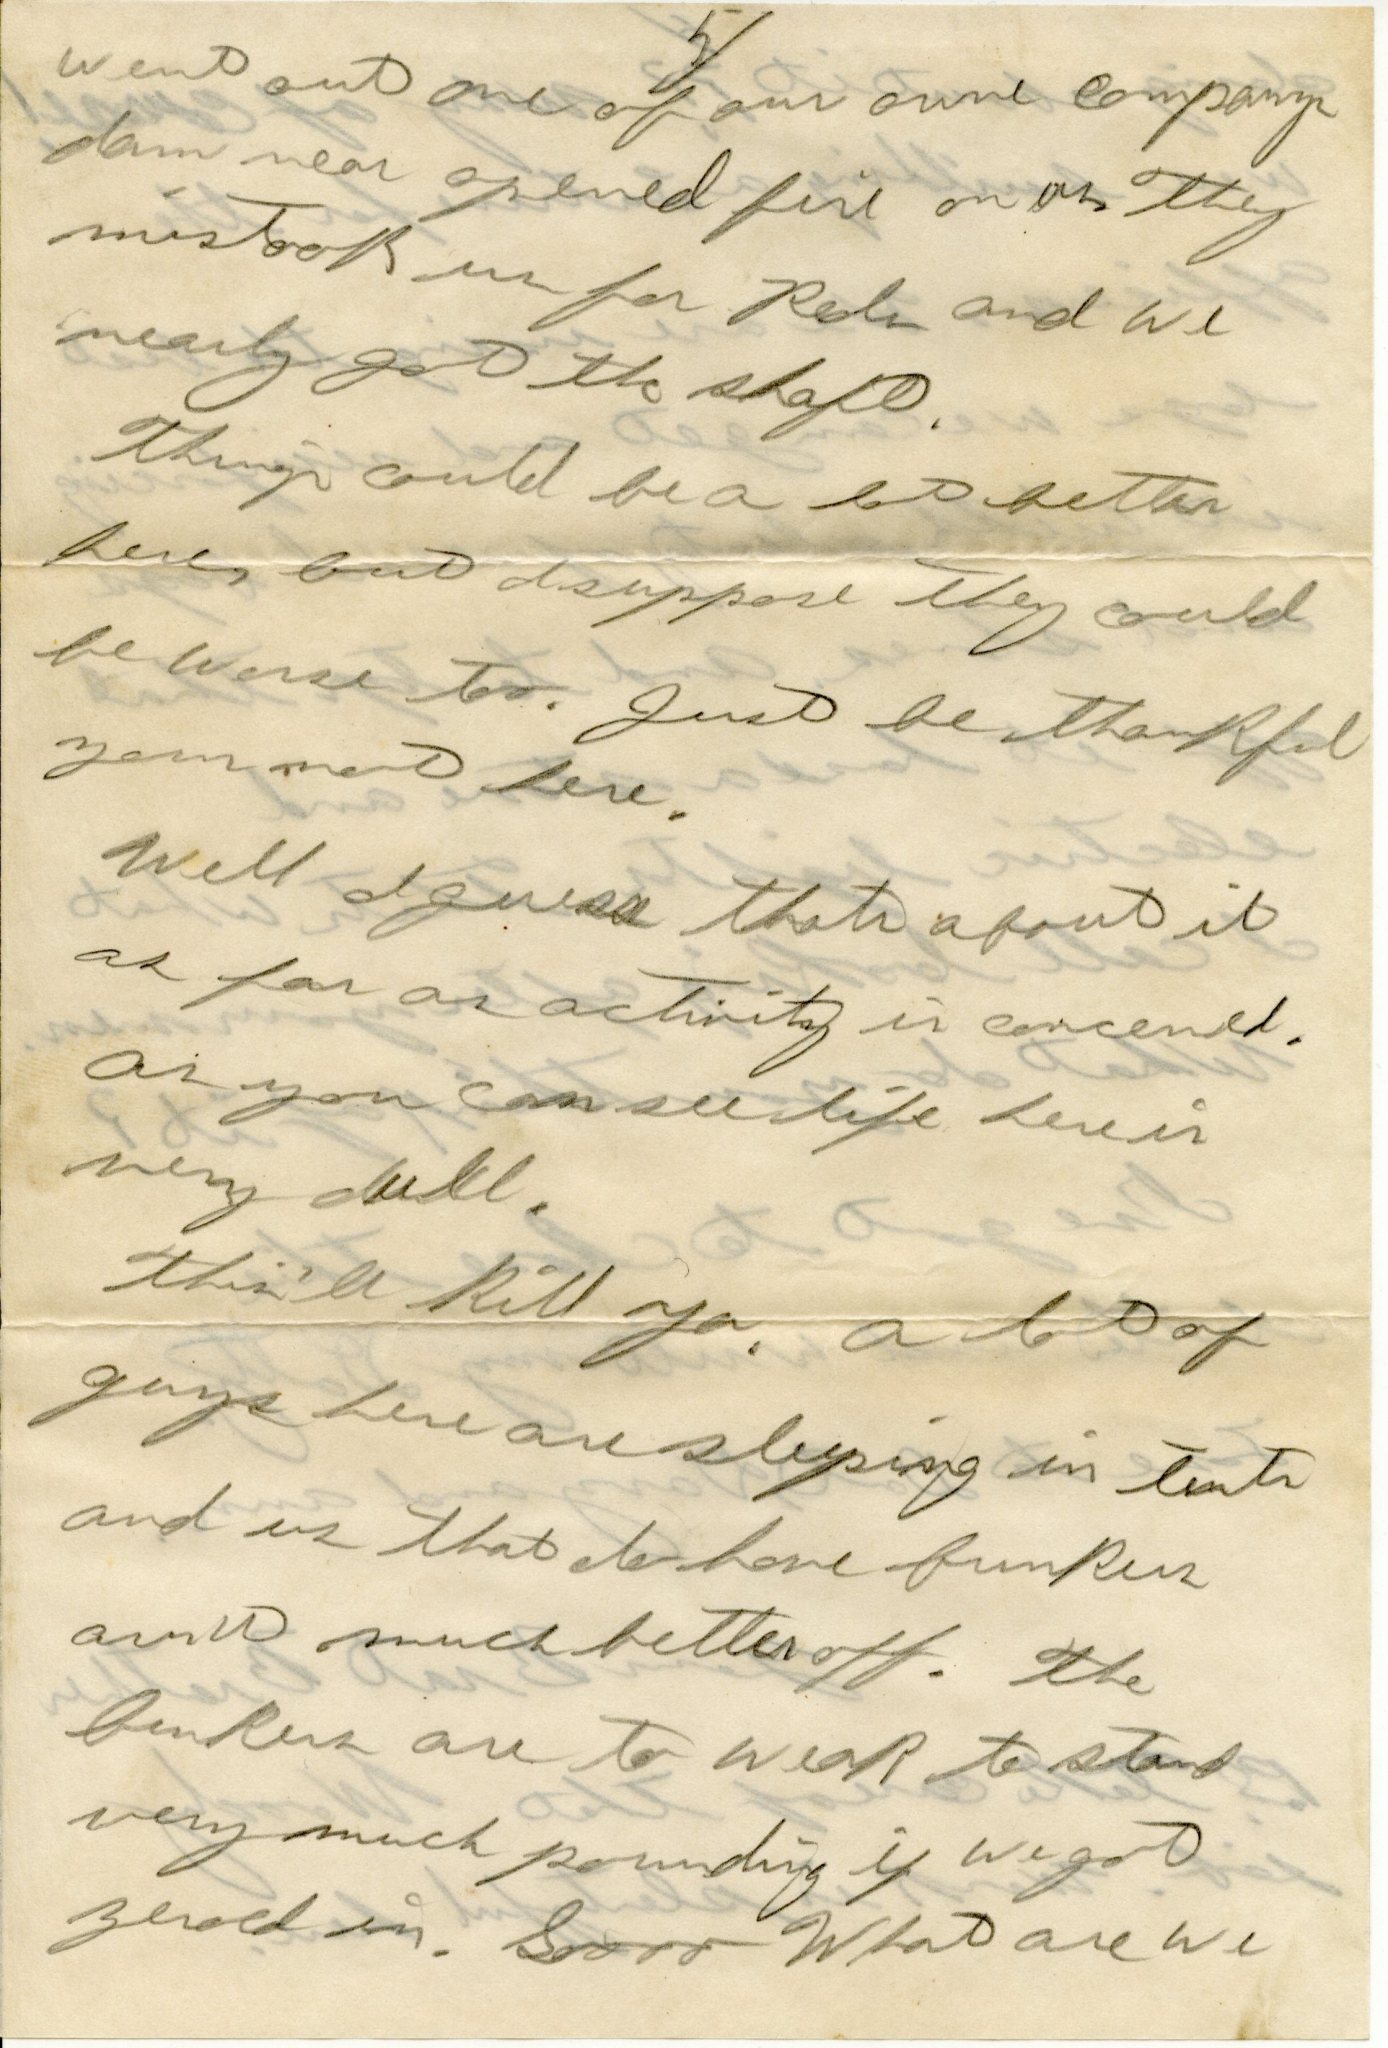 5/
went out one of our owne companys
dam near opened fire on us They
mistook us for Reds and we
nearly got the shaft.
Things could be a lot better
here, but I suppose they could
be worse too. Just be thankful
your not here.
Well I guess thats about it
as far as activity is concerned.
As you can see life here is
very dull.
This'll kill ya. A lot of
guys here are sleeping in tents
and us that do have bunkers
arn't much better off. The
bunkers are to weak to stand
very much pounding if we got
zeroed in. Soooo What are we